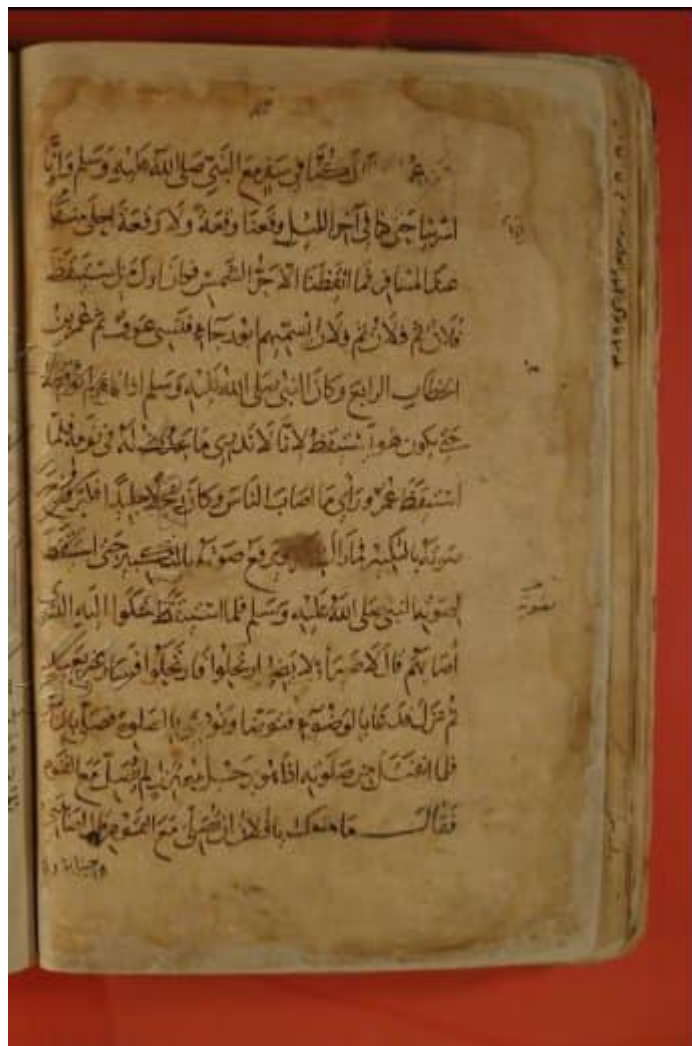 كنا في سفر مع النبي صلى الله عليه وسلم وانا
اسرينا حتى كنا في آخر الليل وقعنا وقعة ولا وقعة احلى
عند المسافر فما ايقظنا الا حر الشمس فكان اول من استيقظ
فلان ثم فلان ثم فلان يسميهم ابو رجاء فنسي عوف ثم عمر بن
الخطاب الرابع وكان النبي صلى الله عليه وسلم اذا نام لم
حتى يكون هو يستيقظ لانا لا ندري ما يحدث له في نومه فلما
استيقظ عمر وراى ما اصاب الناس وكان رجلا جليدا فكبر ورفع
صوته بالتكبير فما زال ويرفع صوته بالتكبير حتى استيقظ
لصوته النبي صلى الله عليه وسلم فلما استيقظ شكوا اليه الذي
اصابهم قال لا ضير او لا يضير ارتحلوا فارتحلوا فسار غير بعيد
ثم نزل فدعا بالوضوء فتوضا ونودي بالصلوة فصلى بالناس
فلما انفتل من صلوته اذا هو برجل معتزل لم يصل مع القوم
فقال ما منعك يا فلان ان تصلي مع القوم قال اصابتني
جنابة ولا
بصوته